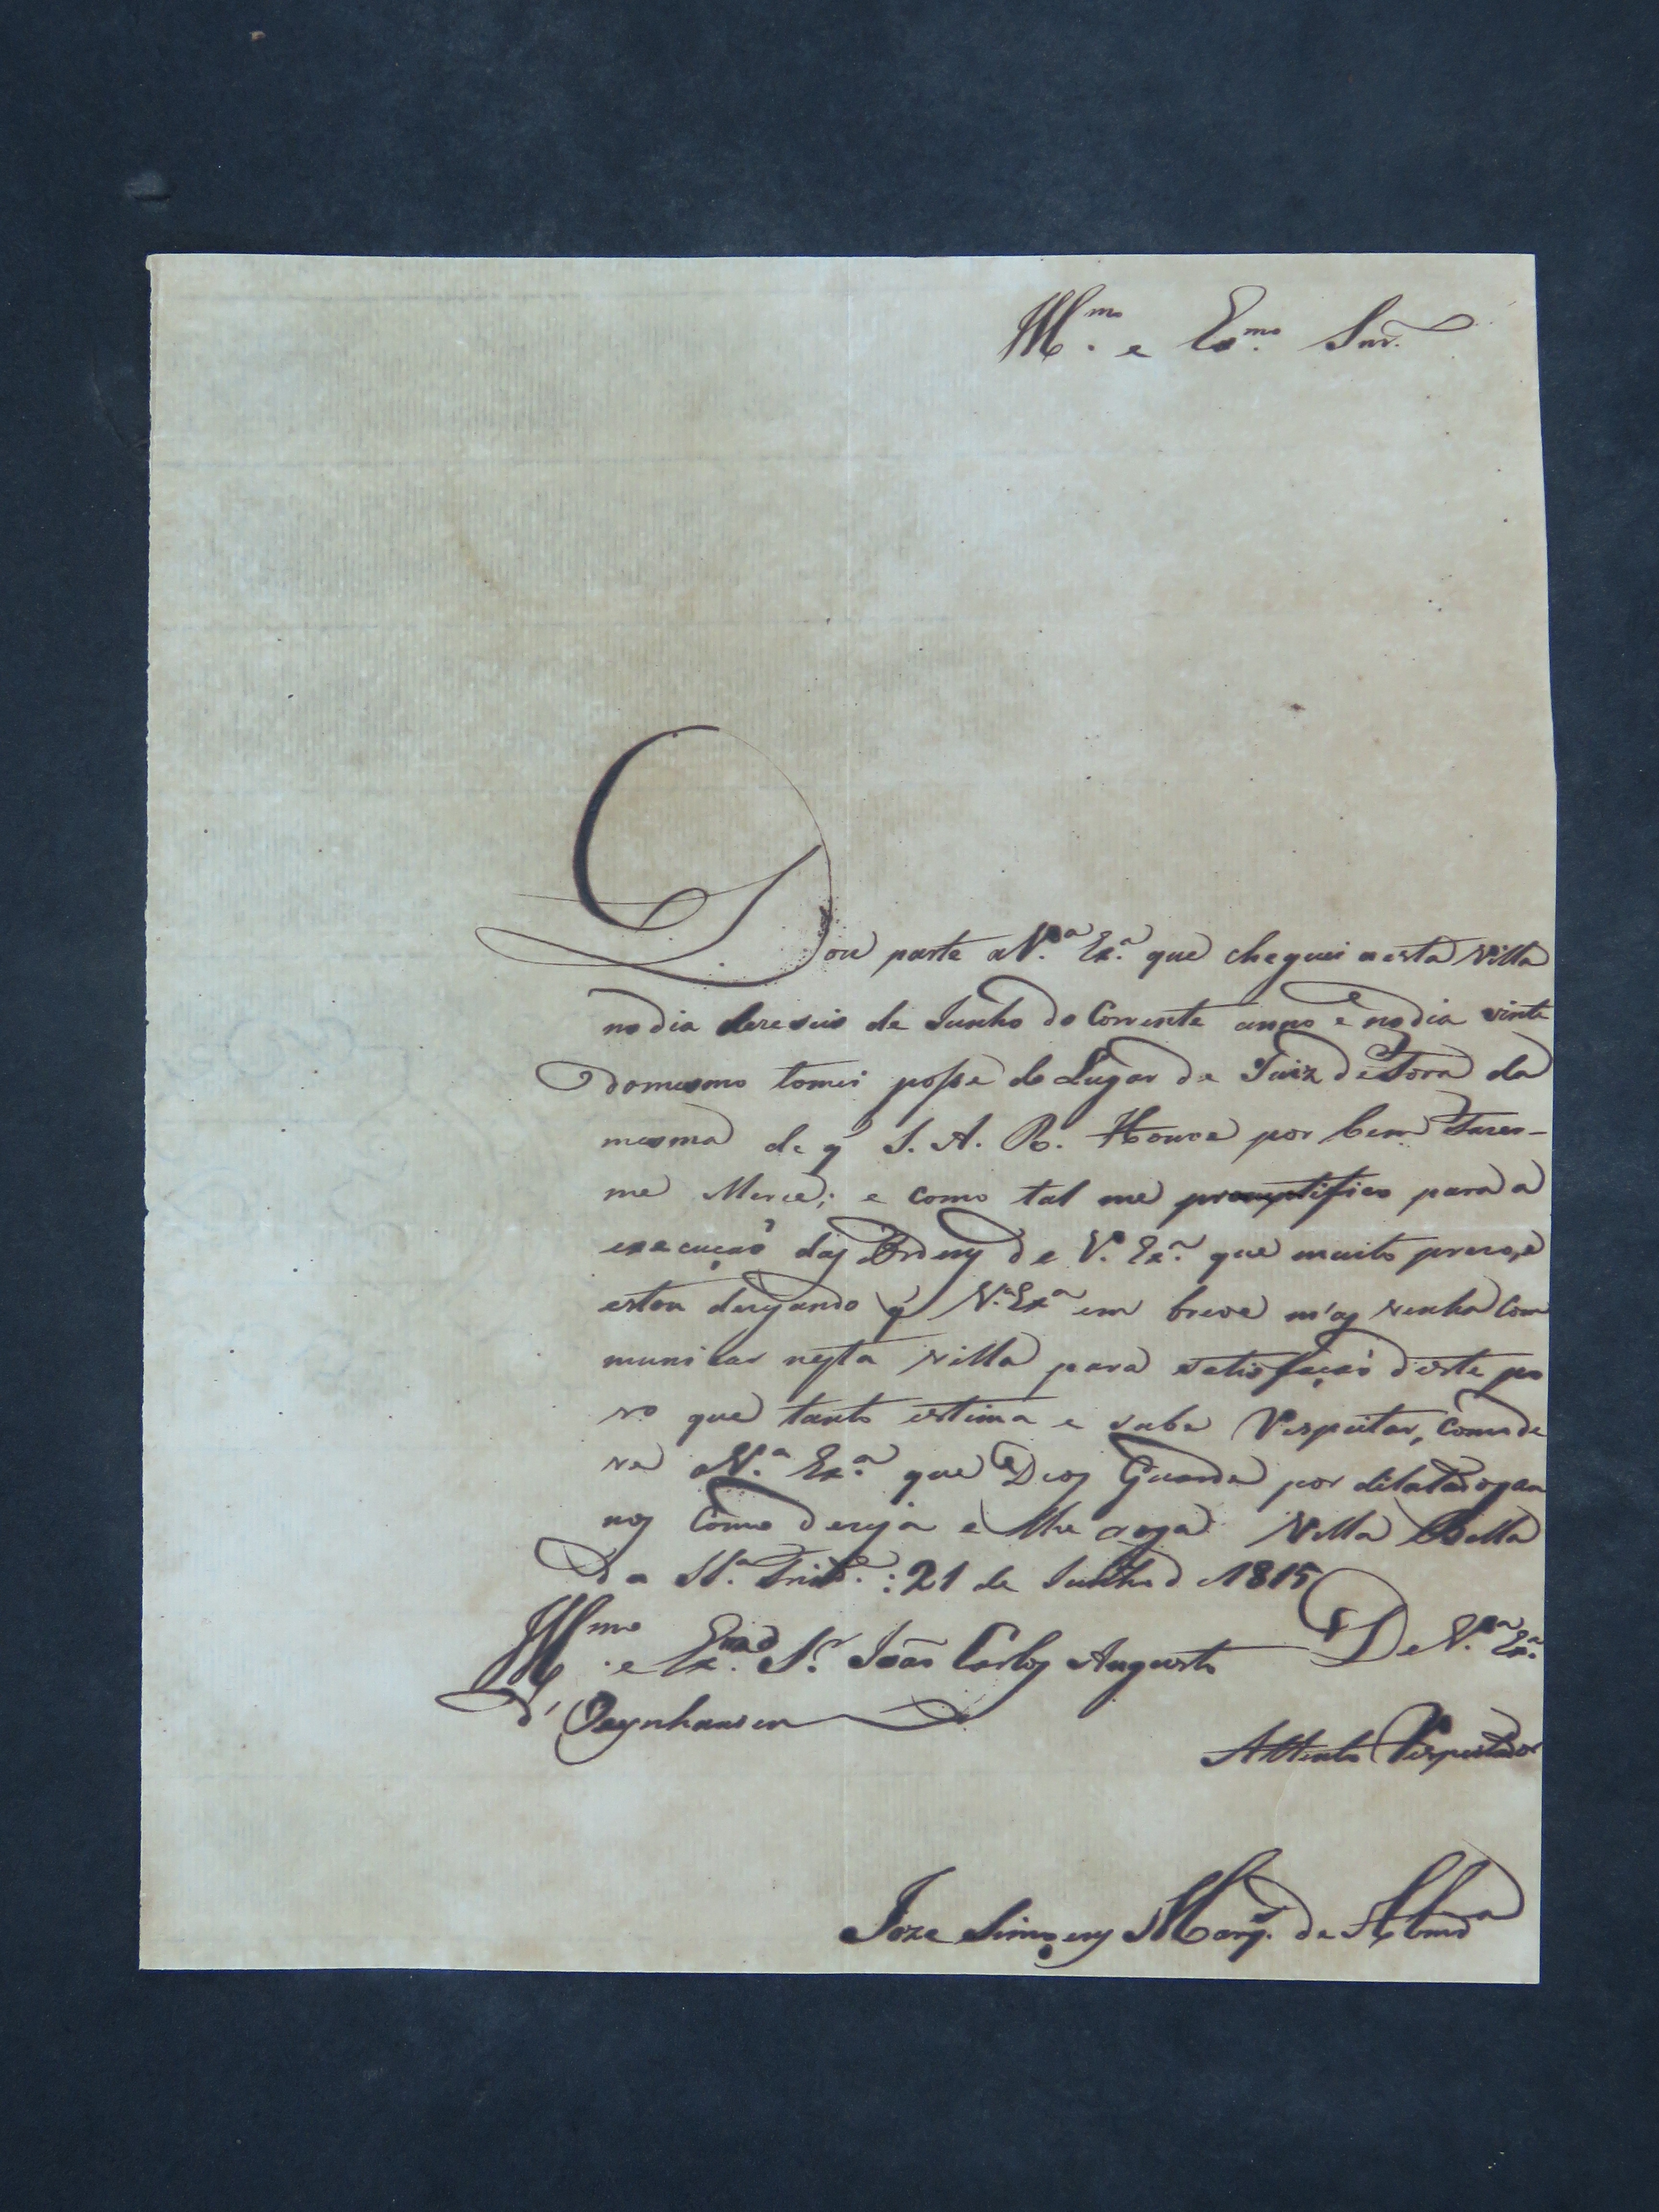 Ill.mo e Ex.mo Snr.
Dou parte a V.a Ex.a que cheguei a esta Villa
no dia dezeseis de Junho do Corrente anno e no dia vinte
do mesmo tomei posse do Lugar de Juiz de Fora da
mesma de q̃ S. A. R. Houve por bem Fazer-
me Merce; e como tal me promptifico para a
execuçaõ das Ordens de V. Ex.a que muito prezo, e
estou dezejando q̃ V.a Ex.a em breve nos venha Com
municar nesta villa para satisfaçaõ deste po
vo que tanto estima e sabe Respeitar, como de
ve a V.a Ex.a que Deos Guarde por dilatados an
nos Como dezeja e lhe roga Villa Bella
da SS.a Trin.de: 21 de Junho d 1815
Ill.mo e Ex.mo S.r Joaõ Carlos Augusto De V.a Ex.a
d'Oeynhausen
Attento Respeitador
Joze Simoens Marq. de Almd.a